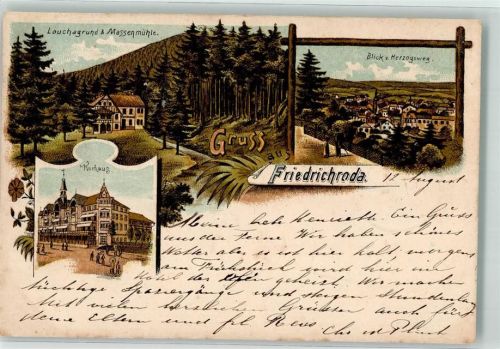 Lauchagrund & Massenmühle.
Blick v. Herzogsweg.
Gruss
aus
Friedrichroda.
Kurhaus
12 August
Meine liebe Henrieth. Ein Gruss
aus der Ferne. Wir haben schönes
Wetter aber es ist hier kalt, morgens
zum Frühstück wird hier im
Saal der geheizt. Wir machen
tüchtige Spaziergänge und steigen Stundenlang
Mit vielen herzlichen Grüssen auch für
deine Eltern und